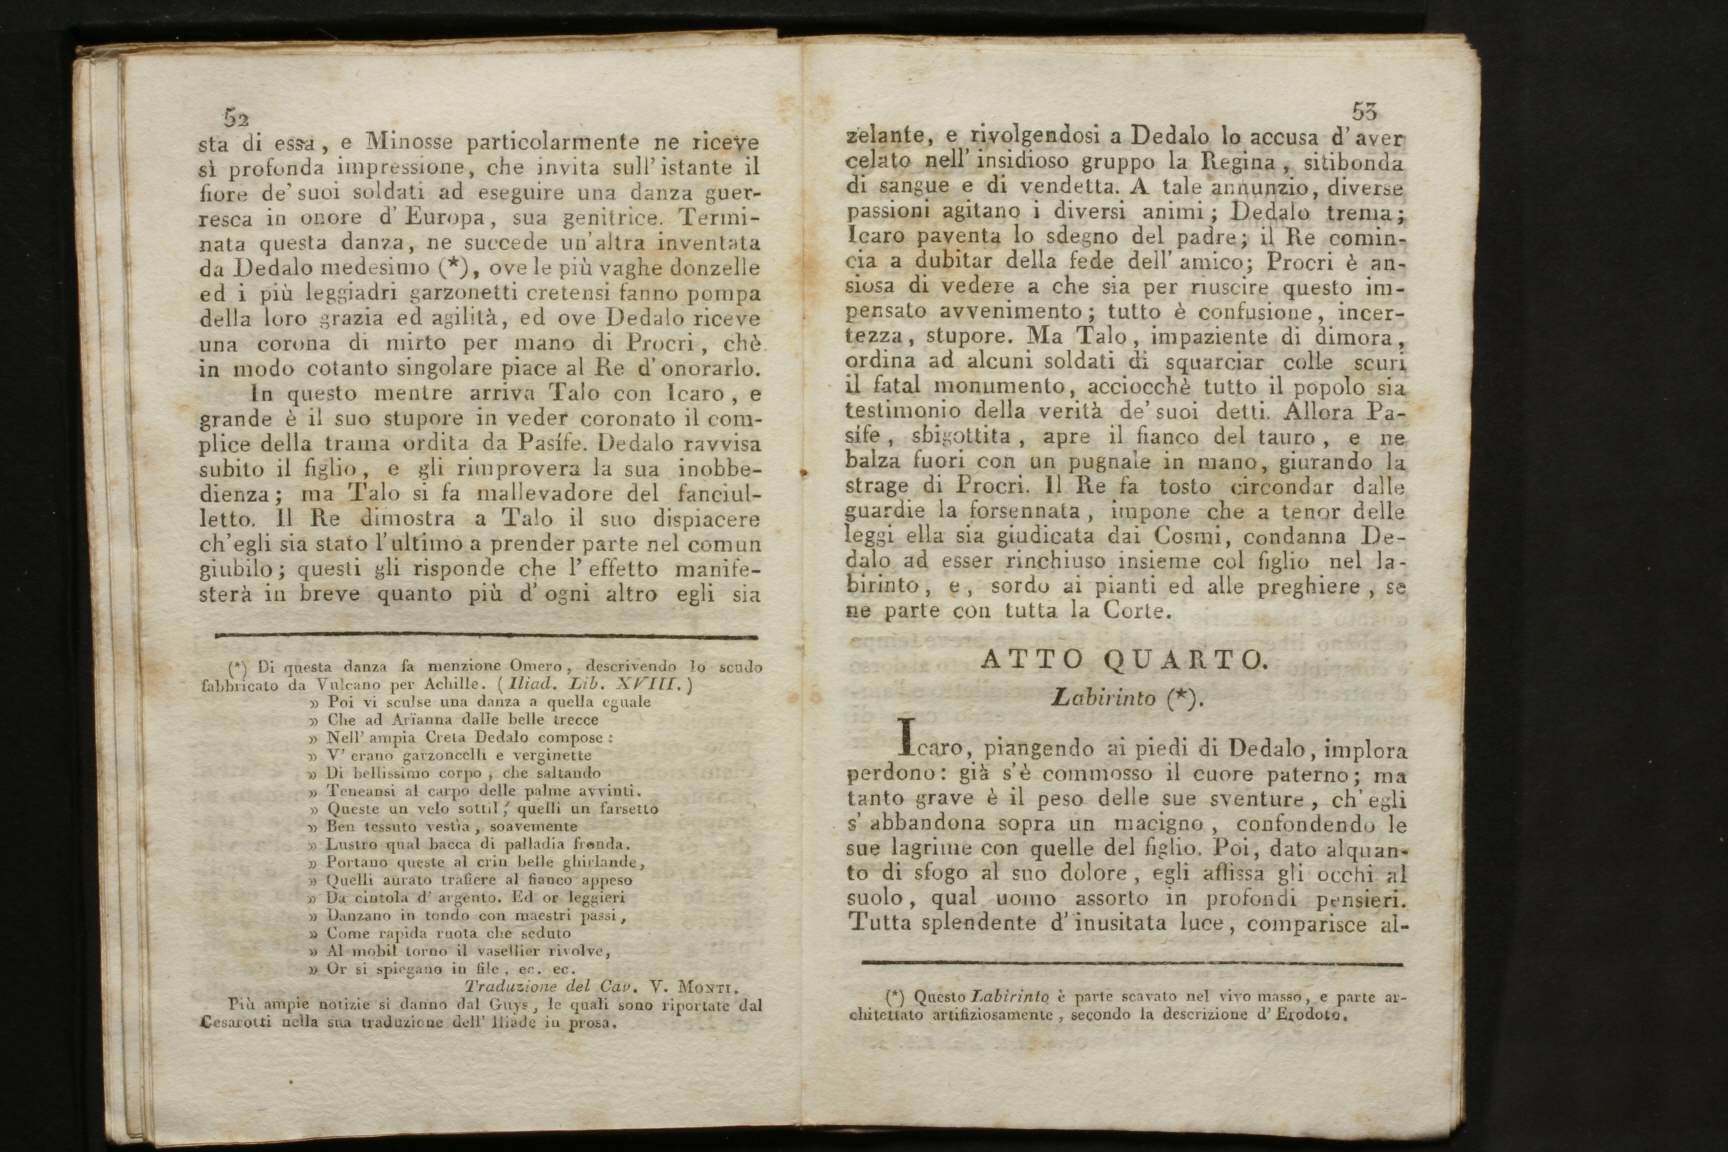 52
sta di essa, e Minosse particolarmente ne riceve
sì profonda impressione, che invita sull'istante il
fiore de' suoi soldati ad eseguire una danza guer-
resca in onore d'Europa, sua genitrice. Termi-
nata questa danza, ne succede un'altra inventata
da Dedalo medesimo (*), ove le più vaghe donzelle
ed i più leggiadri garzonetti cretensi fanno pompa
della loro grazia ed agilità, ed ove Dedalo riceve
una corona di mirto per mano di Procri, chè
in modo cotanto singolare piace al Re d'onorarlo.
In questo mentre arriva Talo con Icaro, e
grande è il suo stupore in veder coronato il com-
plice della trama ordita da Pasífe. Dedalo ravvisa
subito il figlio, e gli rimprovera la sua inobbe-
dienza; ma Talo si fa mallevadore del fanciul-
letto. Il Re dimostra a Talo il suo dispiacere
ch'egli sia stato l'ultimo a prender parte nel comun
giubilo; questi gli risponde che l'effetto manife-
sterà in breve quanto più d'ogni altro egli sia
(*) Di questa danza fa menzione Omero, descrivendo lo scudo
fabbricato da Vulcano per Achille. (Iliad. Lib. XVIII.)
» Poi vi sculse una danza a quella eguale
» Che ad Arïanna dalle belle trecce
» Nell'ampia Creta Dedalo compose:
» V'erano garzoncelli e verginette
» Di bellissimo corpo, che saltando
» Teneansi al carpo delle palme avvinti.
» Queste un velo sottil, quelli un farsetto
» Ben tessuto vestìa, soavemente
» Lustro qual bacca di palladia fronda.
» Portano queste al crin belle ghirlande,
» Quelli aurato trafiere al fianco appeso
» Da cintola d'argento. Ed or leggieri
» Danzano in tondo con maestri passi,
» Come rapida ruota che seduto
» Al mobil torno il vasellier rivolve,
» Or si spiegano in file, ec. ec.
Traduzione del Cav. V. MONTI.
Più ampie notizie si danno dal Guys, le quali sono riportate dal
Cesarotti nella sua traduzione dell'Iliade in prosa.
53
zelante, e rivolgendosi a Dedalo lo accusa d'aver
celato nell'insidioso gruppo la Regina, sitibonda
di sangue e di vendetta. A tale annunzio, diverse
passioni agitano i diversi animi; Dedalo trema;
Icaro paventa lo sdegno del padre; il Re comin-
cia a dubitar della fede dell'amico; Procri è an-
siosa di vedere a che sia per riuscire questo im-
pensato avvenimento; tutto è confusione, incer-
tezza, stupore. Ma Talo, impaziente di dimora,
ordina ad alcuni soldati di squarciar colle scuri
il fatal monumento, acciocchè tutto il popolo sia
testimonio della verità de' suoi detti. Allora Pa-
sífe, sbigottita, apre il fianco del tauro, e ne
balza fuori con un pugnale in mano, giurando la
strage di Procri. Il Re fa tosto circondar dalle
guardie la forsennata, impone che a tenor delle
leggi ella sia giudicata dai Cosmi, condanna De-
dalo ad esser rinchiuso insieme col figlio nel la-
birinto, e, sordo ai pianti ed alle preghiere, se
ne parte con tutta la Corte.
ATTO QUARTO.
Labirinto (*).
Icaro, piangendo ai piedi di Dedalo, implora
perdono: già s'è commosso il cuore paterno; ma
tanto grave è il peso delle sue sventure, ch'egli
s'abbandona sopra un macigno, confondendo le
sue lagrime con quelle del figlio. Poi, dato alquan-
to di sfogo al suo dolore, egli affissa gli occhi al
suolo, qual uomo assorto in profondi pensieri.
Tutta splendente d'inusitata luce, comparisce al-
(*) Questo Labirinto è parte scavato nel vivo masso, e parte ar-
chitettato artifiziosamente, secondo la descrizione d'Erodoto.